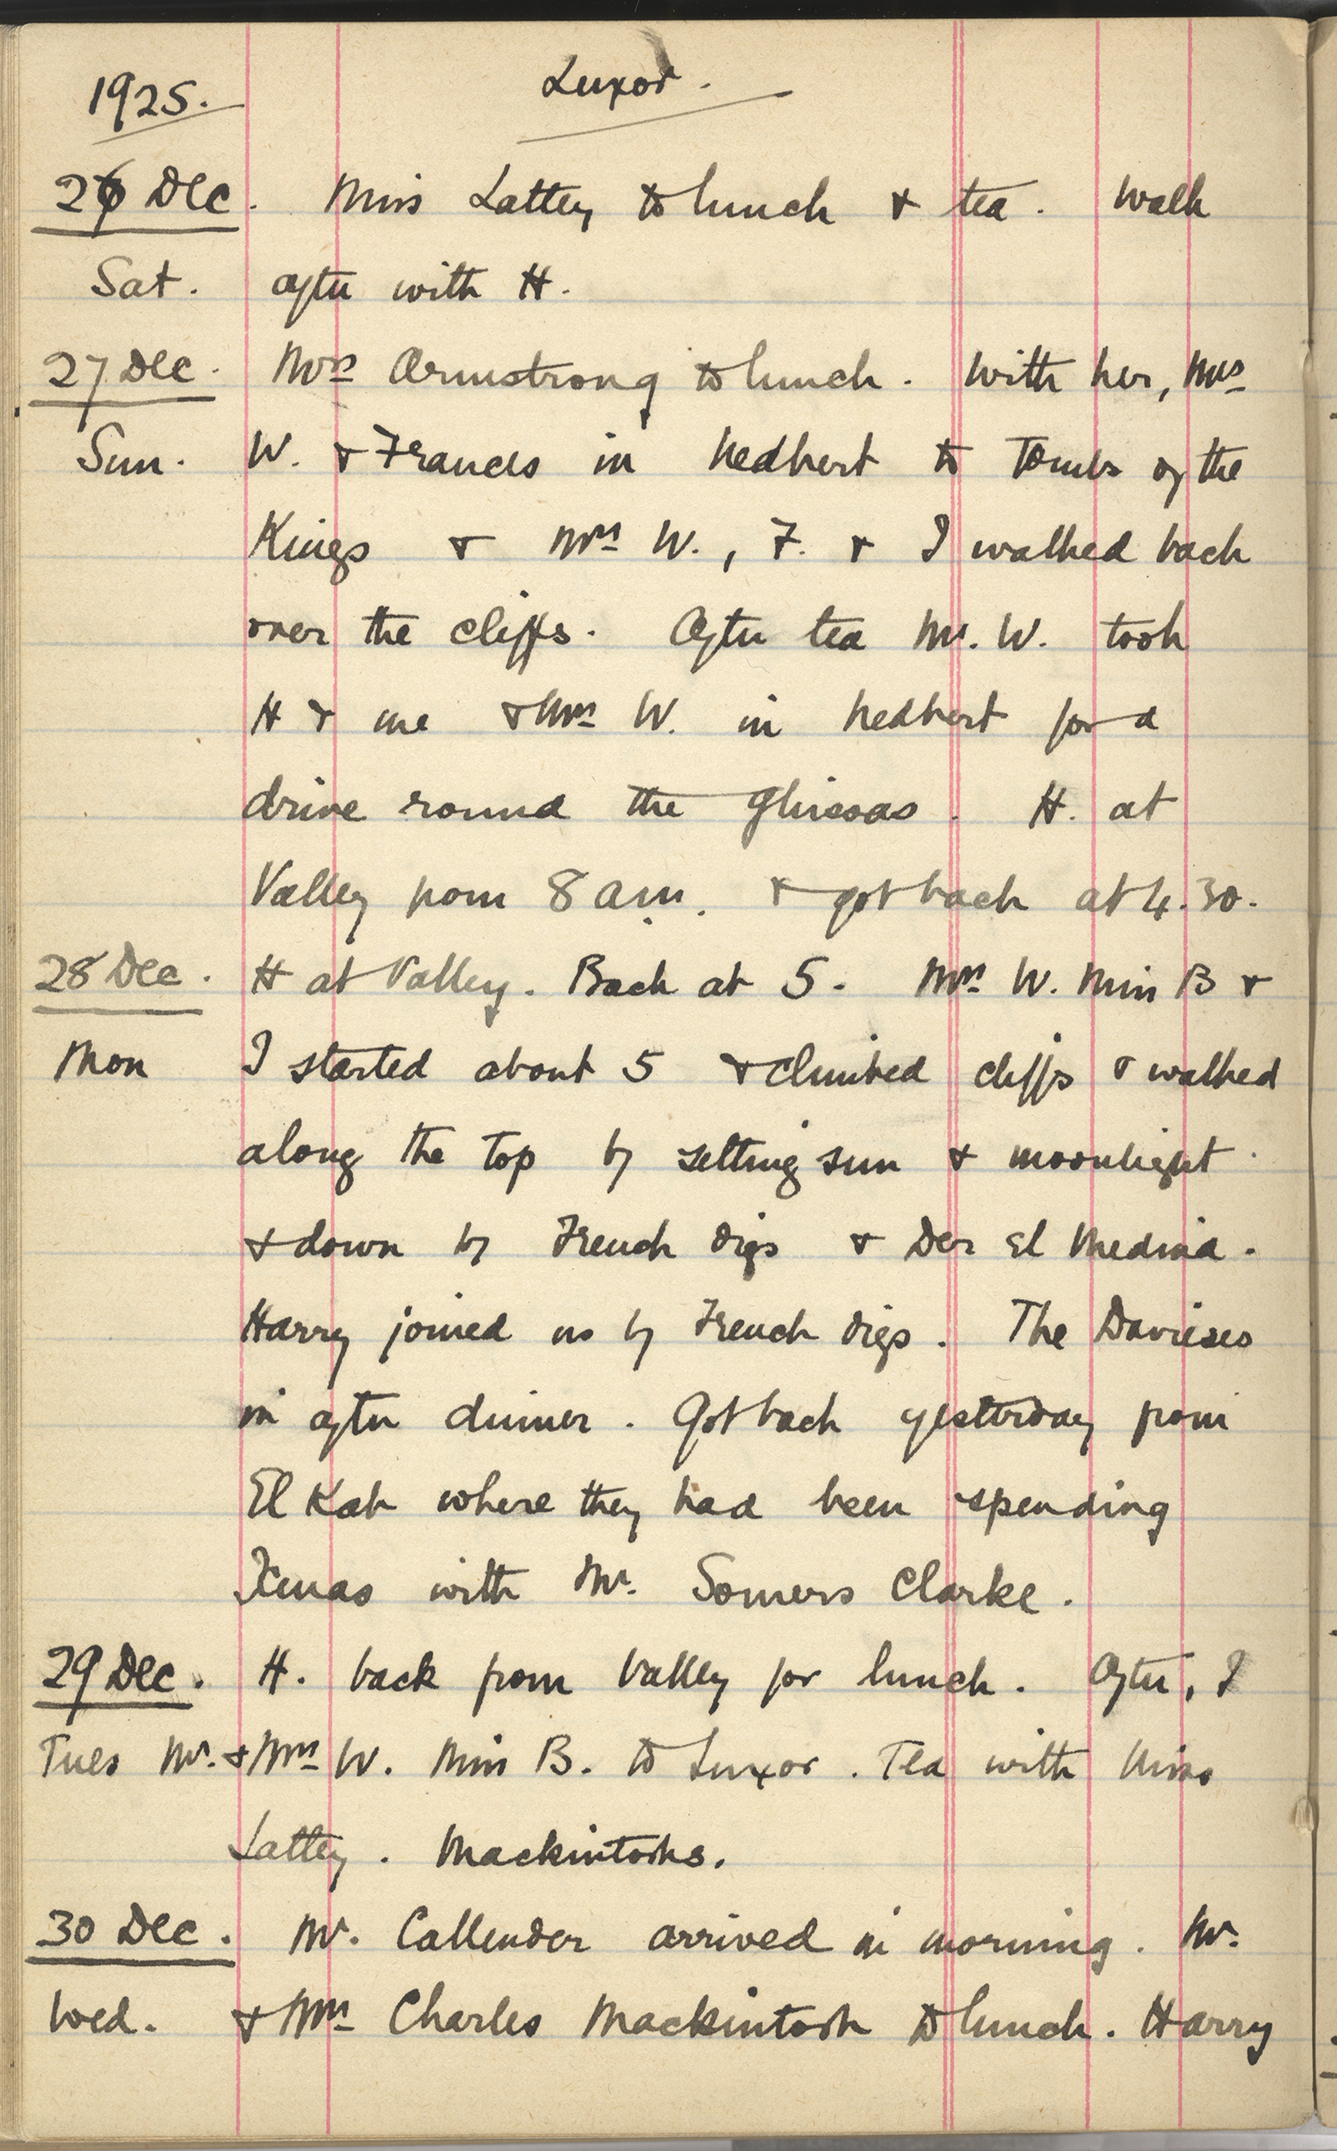 1925. Luxor.
26 Dec. Miss Lattey to lunch & tea. Walk
Sat. after with H.
27 Dec. Mrs Armstrong to lunch. With her, Mrs
Sun. W. & Francis in Hedhert to Tombs of the
Kings & Mrs W., F. & I walked back
over the cliffs. After tea Mr. W. took
H & me & Mrs W. in Hedhert for a
drive round the Ghissas. H. at
Valley from 8 am. & got back at 4.30.
28 Dec. H at Valley. Back at 5. Mrs W. Miss B &
Mon I started about 5 & climbed cliffs & walked
along the top by setting sun & moonlight.
& down by French digs & Der el Medina.
Harry joined us by French digs. The Davieses
in after dinner. Got back yesterday from
El Kab where they had been spending
Xmas with Mr. Somers Clarke.
29 Dec. H. back from Valley for lunch. After, I
Tues Mr. & Mrs W. Miss B. to Luxor. Tea with Miss
Lattey. Mackintoshs.
30 Dec. Mr. Callender arrived in morning. Mr.
Wed. & Mrs Charles Mackintosh to lunch. Harry